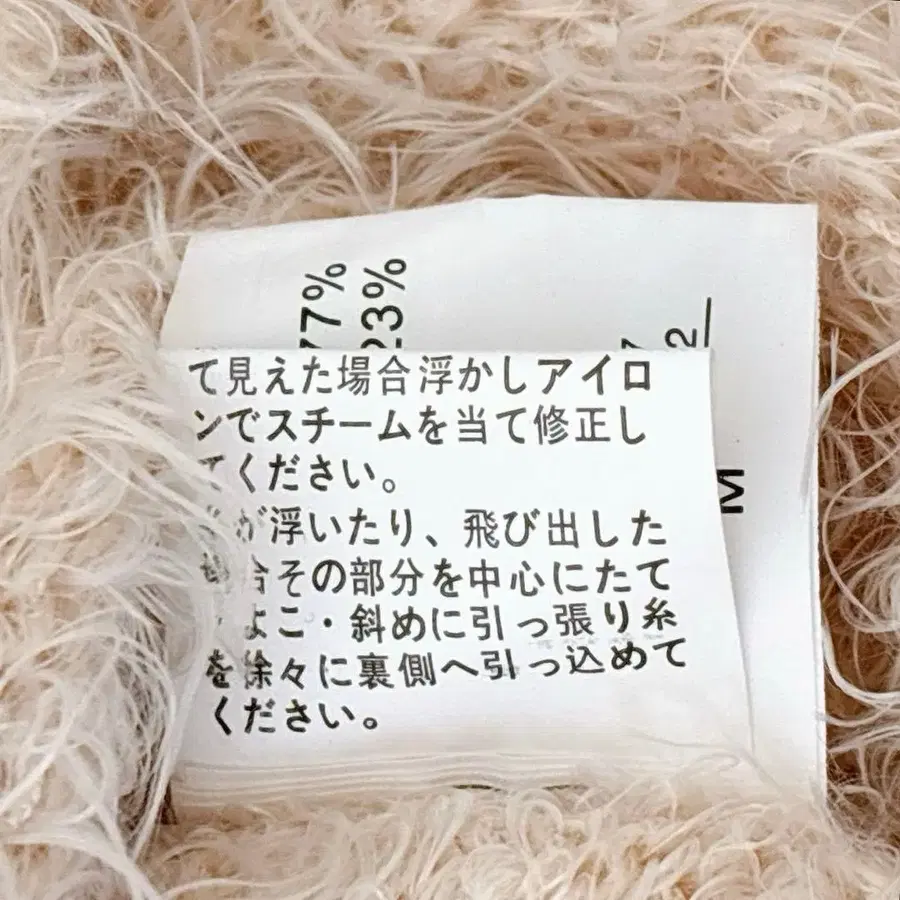 77%
23%
2
M
て見えた場合浮かしアイロ
ンでスチームを当て修正し
てください。
が浮いたり、飛び出した
場合その部分を中心にたて
・よこ・斜めに引っ張り糸
を徐々に裏側へ引っ込めて
ください。